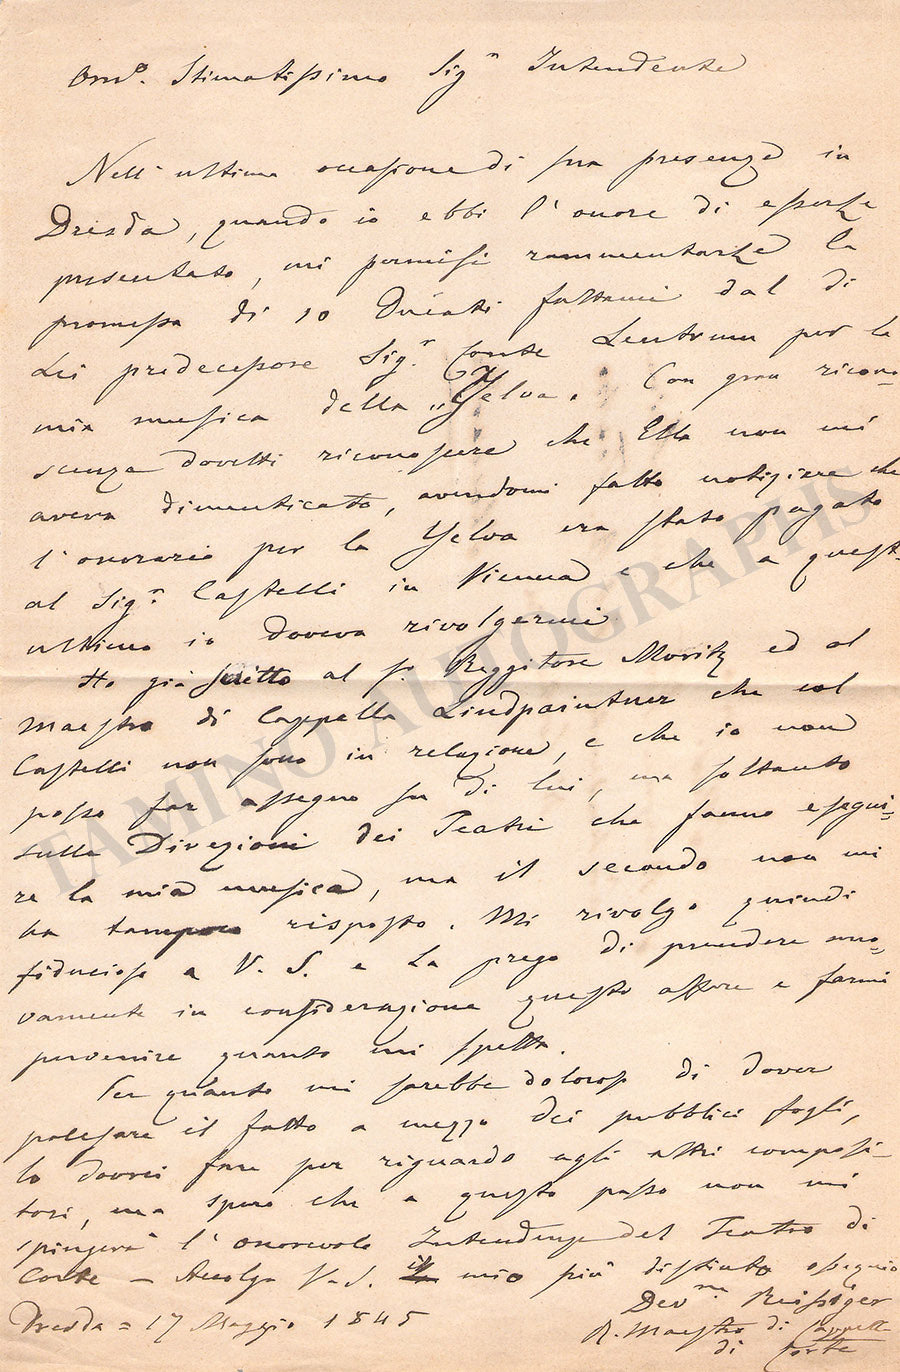 Onmo. Stimatissimo Sigr Intendente
Nell' ultima occasione di sua presenza in
Dresda, quando io ebbi l'onore di esserle
presentato, mi permisi rammentarle la
promessa di 10 Ducati fattami dal di
Lei predecessore Sigr. Conte Leutrum per la
mia musica della „Yelva. Con gran ricono-
scenza dovetti riconoscere che Ella non mi
aveva dimenticato, avendomi fatto notiziare che
l'onorario per la Yelva era stato pagato
al Sigr. Castelli in Vienna e che a quest-
ultimo io doveva rivolgermi
Ho già scritto al Sr. Reggitore Moritz ed al
Maestro di Cappella Lindpaintner che col
Castelli non sono in relazione, e che io non
posso far assegno su di lui, ma soltanto
sulla Direzioni dei Teatri che fanno esegui-
re la mia musica, ma il secondo non mi
ha tampoco risposto. Mi rivolgo quindi
fiducioso a V. S. e La prego di prendere nuo-
vamente in considerazione questo affare e farmi
pervenire quanto mi spetta.
Per quanto mi sarebbe doloroso di dover
palesare il fatto a mezzo dei pubblici fogli,
lo dovrei fare per riguardo agli altri composi-
tori, ma spero che a questo passo non mi
spingerà l'onorevole Intendenza del Teatro di
Corte — Accolga V. S. il mio più distinto ossequio
Devmo Reissiger
R. Maestro di Cappella
di Corte
Dresda = 17 Maggio 1845
TAMINO AUTOGRAPHS